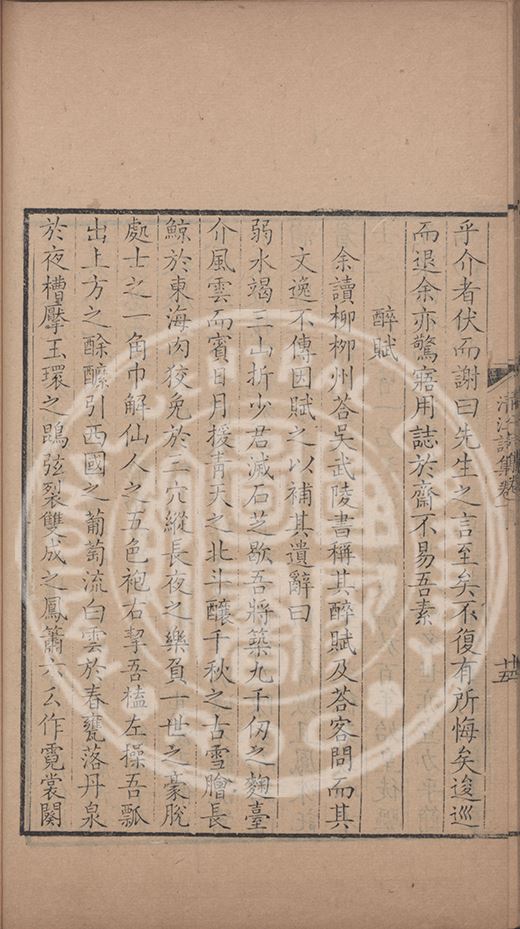 乎介者伏而謝曰先生之言至矣不復有所悔矣逡巡
而退余亦驚寤用誌於齋不易吾素
醉賦
余讀柳柳州荅吳武陵書稱其醉賦及荅客問而其
文逸不傳因賦之以補其遺辭曰
弱水竭三山折少君滅石芝歇吾將築九千仞之麴臺
介風雲而賓日月援青天之北斗釀千秋之古雪膾長
鯨於東海肉狡兔於三穴縱長夜之樂負一世之豪脫
處士之一角巾解仙人之五色袍右挈吾榼左操吾瓢
出上方之酴醾引西國之葡萄流白雲於春甕落丹泉
於夜槽擘玉環之鵾弦裂雙成之鳳簫六幺作霓裳闋
清江詩集卷一
廿五